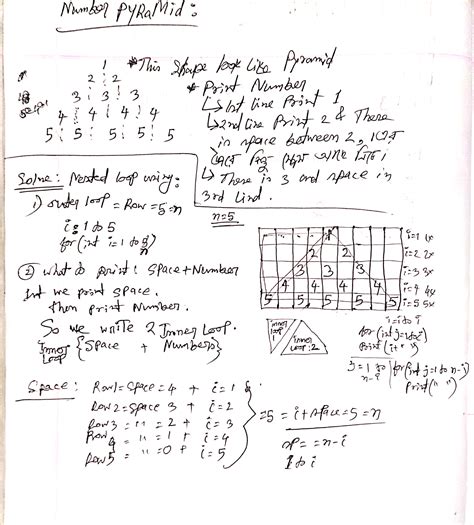 Number PyRaMid:
1
2 2
3 3 3
4 4 4 4
5 5 5 5 5
* This shape look like Pyramid
* Print Number
↳ 1st line Print 1
↳ 2nd line Print 2 & There
is space between 2,
↳ There is 3 and space in
3rd Lind.
Solve: Nested loop using:
1) outer loop = Row = 5 = n
i = 1 to 5
for (int i = 1 to 5/n)
n=5
② what to print: Space + Number
Int we print space.
then print Number.
So we write 2 Inner Loop.
Inner Loop {Space + Numbers}
1
2 2
3 3 3
4 4 4 4
5 5 5 5 5
i=1 1x
i=2 2x
i=3 3x
i=4 4x
i=5 5x
inner loop 1
inner loop: 2
i = i to i
for (int j=1 to i)
Print (i+" ")
j = 1 to n-i
for (int j=1 to n-i)
Print(" ")
Space: Row1 = Space = 4 + i = 1
Row 2 = space 3 + i = 2
Row 3 = " = 2 + i = 3
Row 4 = " = 1 + i = 4
Row 5 = " = 0 + i = 5
= 5 = i + space = 5 = n
sp = = n - i
1 to i